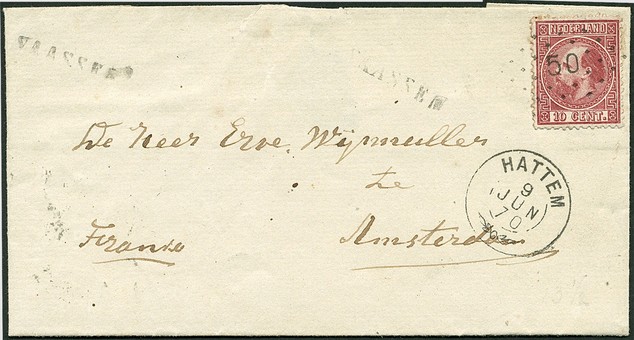 VAASSEN
VAASSEN
NEDERLAND
50
10 CENT.
De Heer Erve. Wijmuller
te
Amsterdam
Franco
HATTEM
9
JUN
70